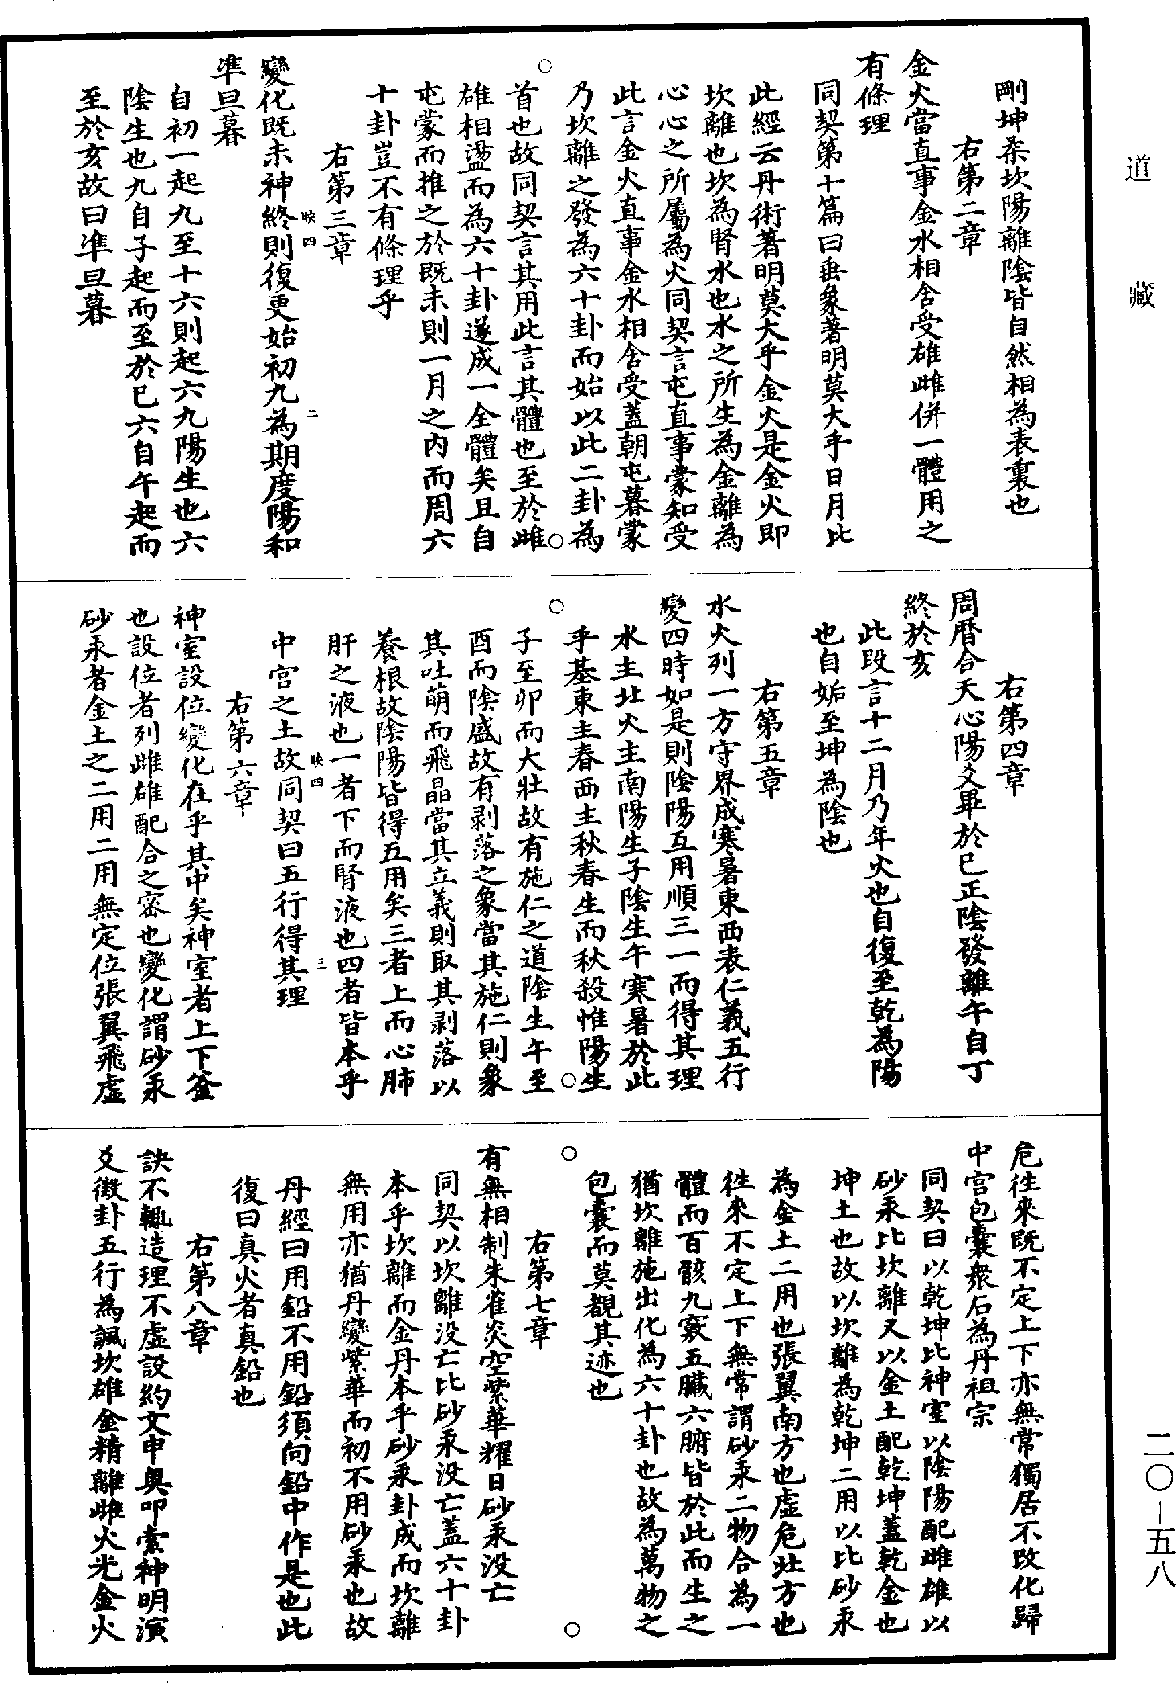 道藏
剛坤柔坎陽離陰皆自然相為表裏也
右第二章
金火當直事金水相含受雄雌併一體用之
有條理
同契第十篇曰垂象著明莫大乎日月比
此經云丹術著明莫大乎金火是金火即
坎離也坎為腎水也水之所生為金離為
心心之所屬為火同契言屯直事蒙知受
此言金火直事金水相含受蓋朝屯暮蒙
乃坎離之發為六十卦而始以此二卦為
首也故同契言其用此言其體也至於雌
雄相盪而為六十卦遂成一全體矣且自
屯蒙而推之於既未則一月之內而周六
十卦豈不有條理乎
右第三章
映四
二
變化既未神終則復更始初九為期度陽和
準旦暮
自初一起九至十六則起六九陽生也六
陰生也九自子起而至於巳六自午起而
至於亥故曰準旦暮
右第四章
周曆合天心陽爻畢於巳正陰發離午自丁
終於亥
此段言十二月乃年火也自復至乾為陽
也自姤至坤為陰也
右第五章
水火列一方守界成寒暑東西表仁義五行
變四時如是則陰陽互用順三一而得其理
水主北火主南陽生子陰生午寒暑於此
乎基東主春西主秋春生而秋殺惟陽生
子至卯而大壯故有施仁之道陰生午至
酉而陰盛故有剥落之象當其施仁則象
其吐萌而飛晶當其立義則取其剥落以
養根故陰陽皆得五用矣三者上而心肺
肝之液也一者下而腎液也四者皆本乎
映四
三
中宮之土故同契曰五行得其理
右第六章
神室設位變化在乎其中矣神室者上下釜
也設位者列雌雄配合之密也變化謂砂汞
砂汞者金土之二用二用無定位張翼飛虛
危往來既不定上下亦無常獨居不改化歸
中宮包囊衆石為丹祖宗
同契曰以乾坤比神室以陰陽配雌雄以
砂汞比坎離又以金土配乾坤蓋乾金也
坤土也故以坎離為乾坤二用以比砂汞
為金土二用也張翼南方也虛危北方也
往來不定上下無常謂砂汞二物合為一
體而百骸九竅五臟六腑皆於此而生之
猶坎離施出化為六十卦也故為萬物之
包囊而莫覩其迹也
右第七章
有無相制朱雀炎空紫華耀日砂汞沒亡
同契以坎離沒亡比砂汞沒亡蓋六十卦
本乎坎離而金丹本乎砂汞卦成而坎離
無用亦猶丹變紫華而初不用砂汞也故
丹經曰用鉛不用鉛須向鉛中作是也此
復曰真火者真鉛也
右第八章
訣不輒造理不虛設約文申奧叩索神明演
爻徵卦五行為諷坎雄金精離雌火光金火
二〇－五八